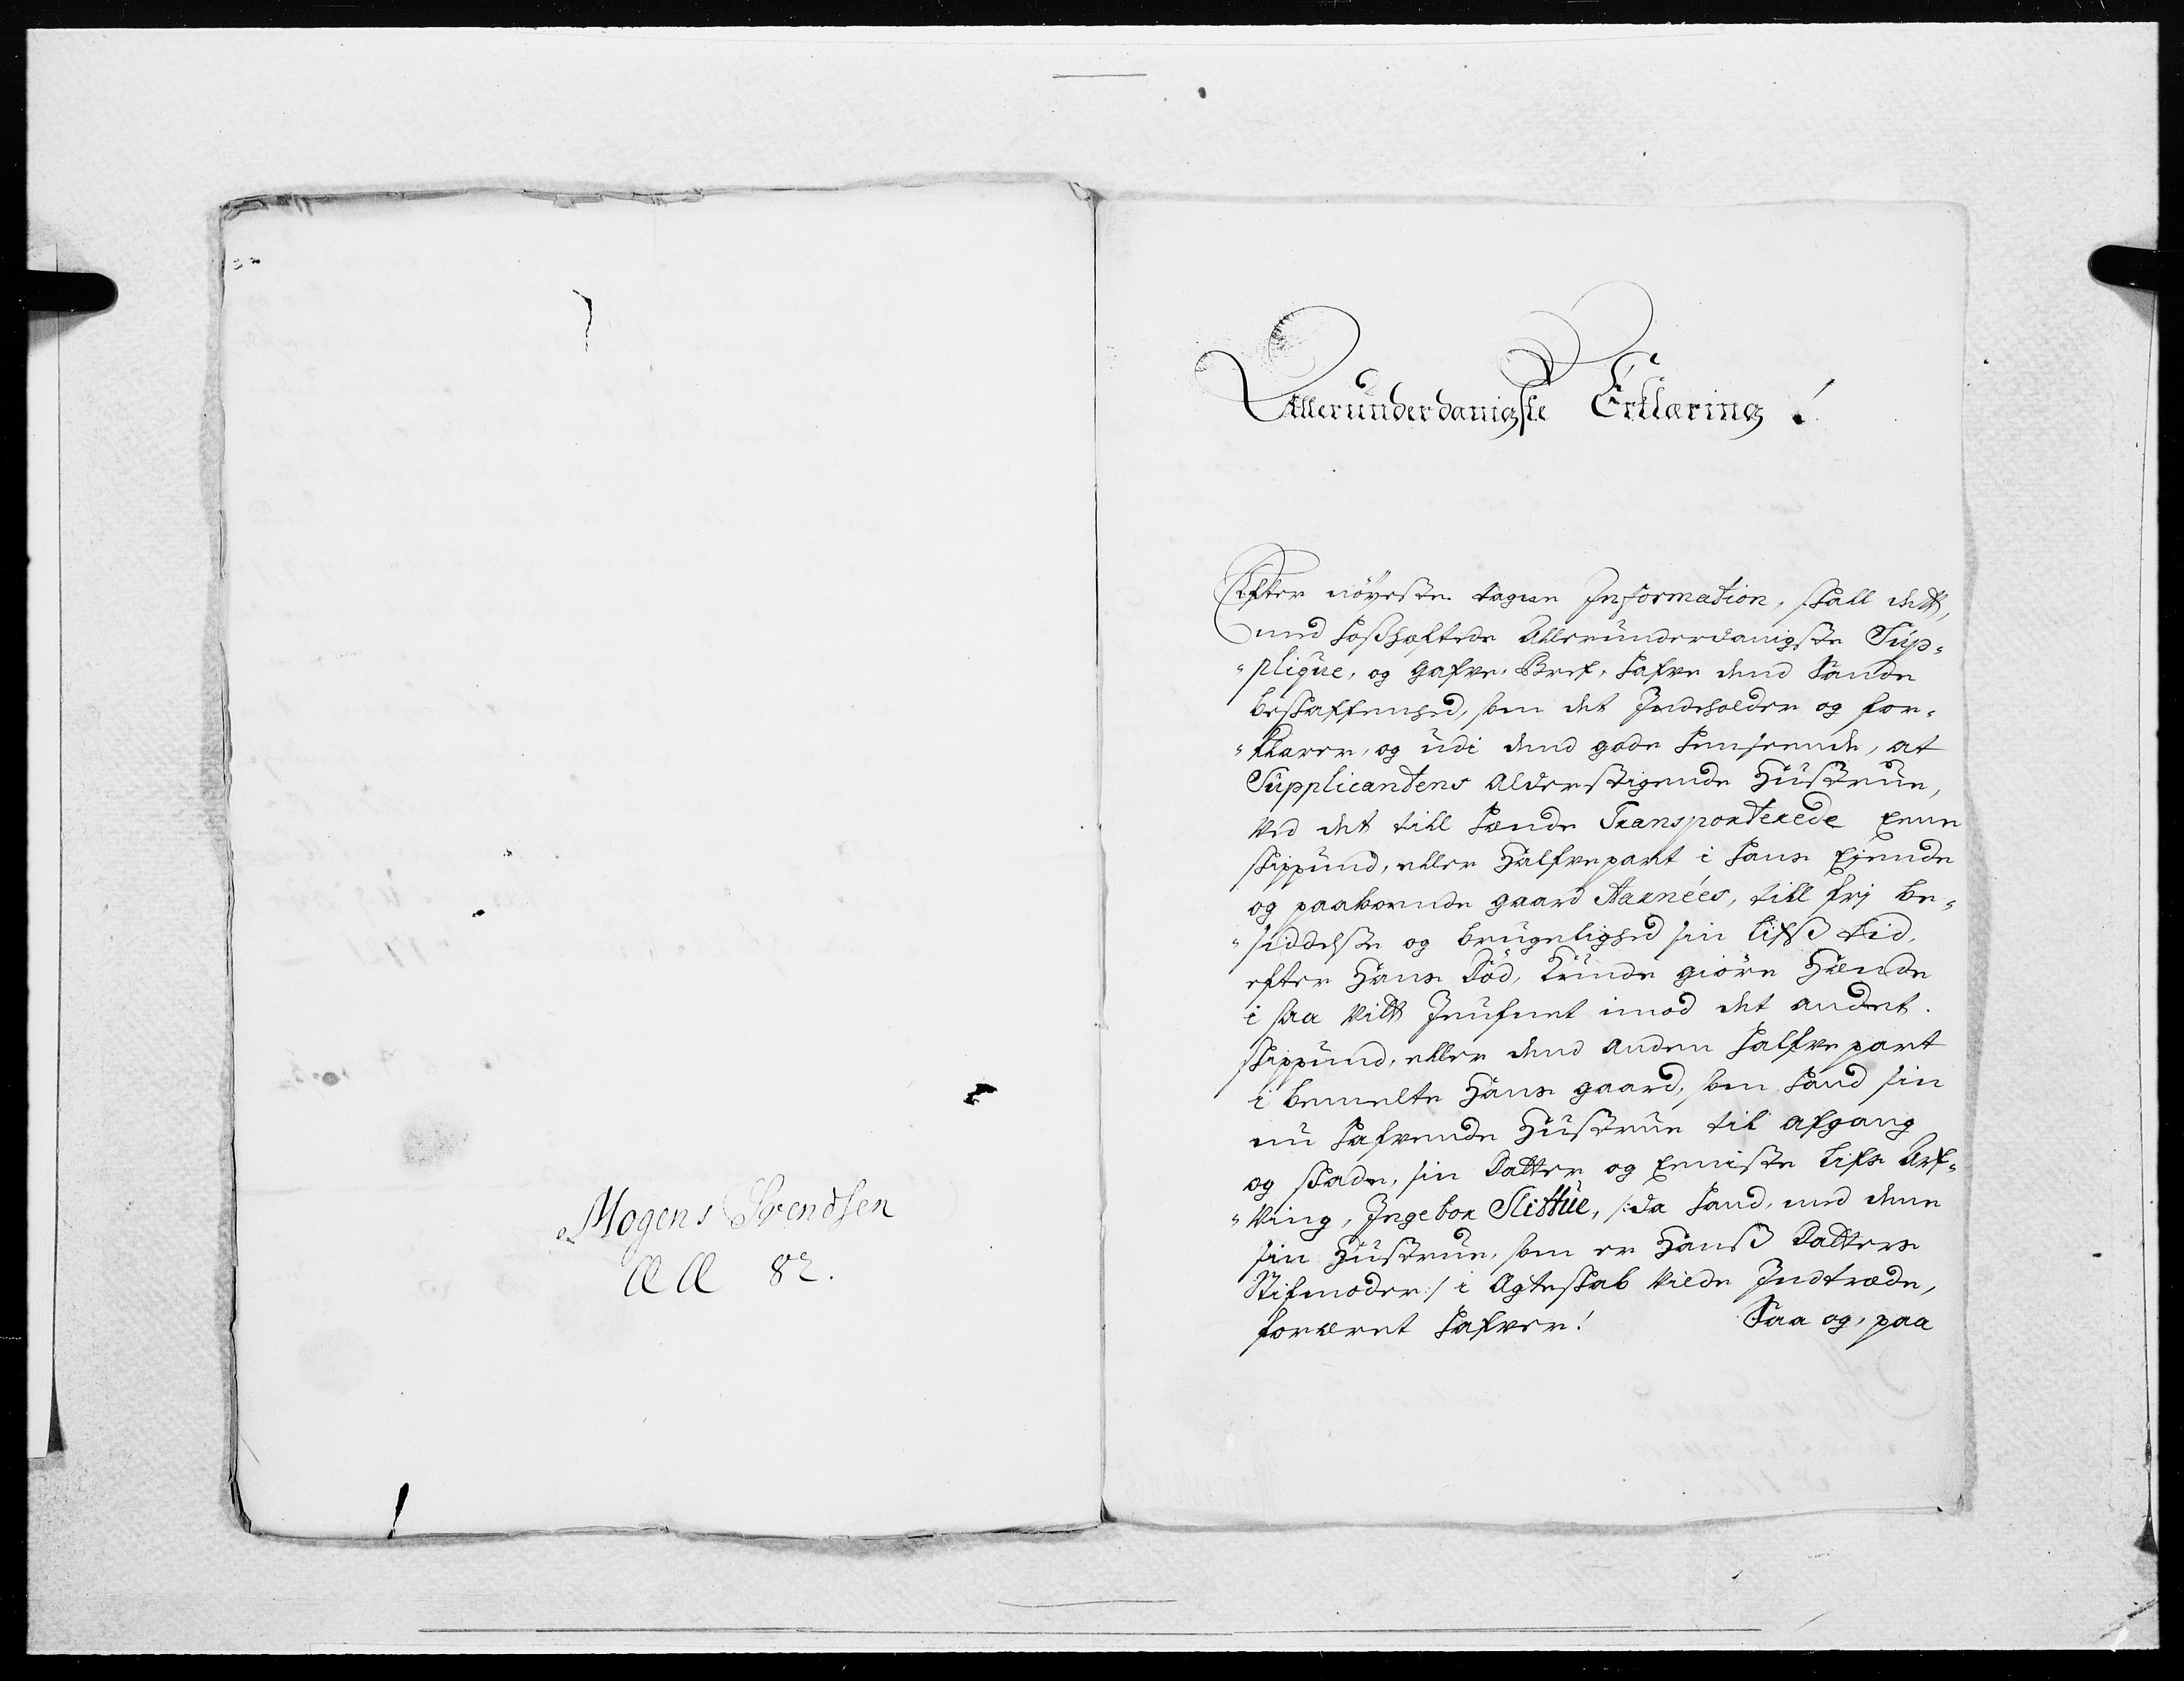 Mogens Svendsen
Æ Æ 82.
Allerunderdanigste Erklæring!
Efter nöyeste tagen Information, skall dett,
med hoßhæftede Allerunderdanigste Sup-
plique, og gafve-Bref, hafve dend Sande
beskaffenhed, som det Indeholder og for-
klarer, og udi dend gode henseende, at
Supplicantens Alderstigende Hustrue,
ved det till hende Transporterede Eene
skippund, eller Halfvepart i hans Ejende
og paaboende gaard Aarnées, till frj be-
siddelse og brugelighed sin Lifß tid,
efter Hans Död, kunde giöre Hende
i saa vitt Jeufnet imod det andet
skippund, eller dend anden halfve part
i bemelte Hans gaard, som hand sin
nu hafvende Hustrue til afgang
og skade, sin Datter og Eeniste Lifs Arf-
ving, Ingebor Slittue, /:da hand, med denne
sin Hustrue, som er Hanß Datters
Stifmoder:/ i Ægteskab vilde Indtræde,
foræret hafver! Saa og, paa